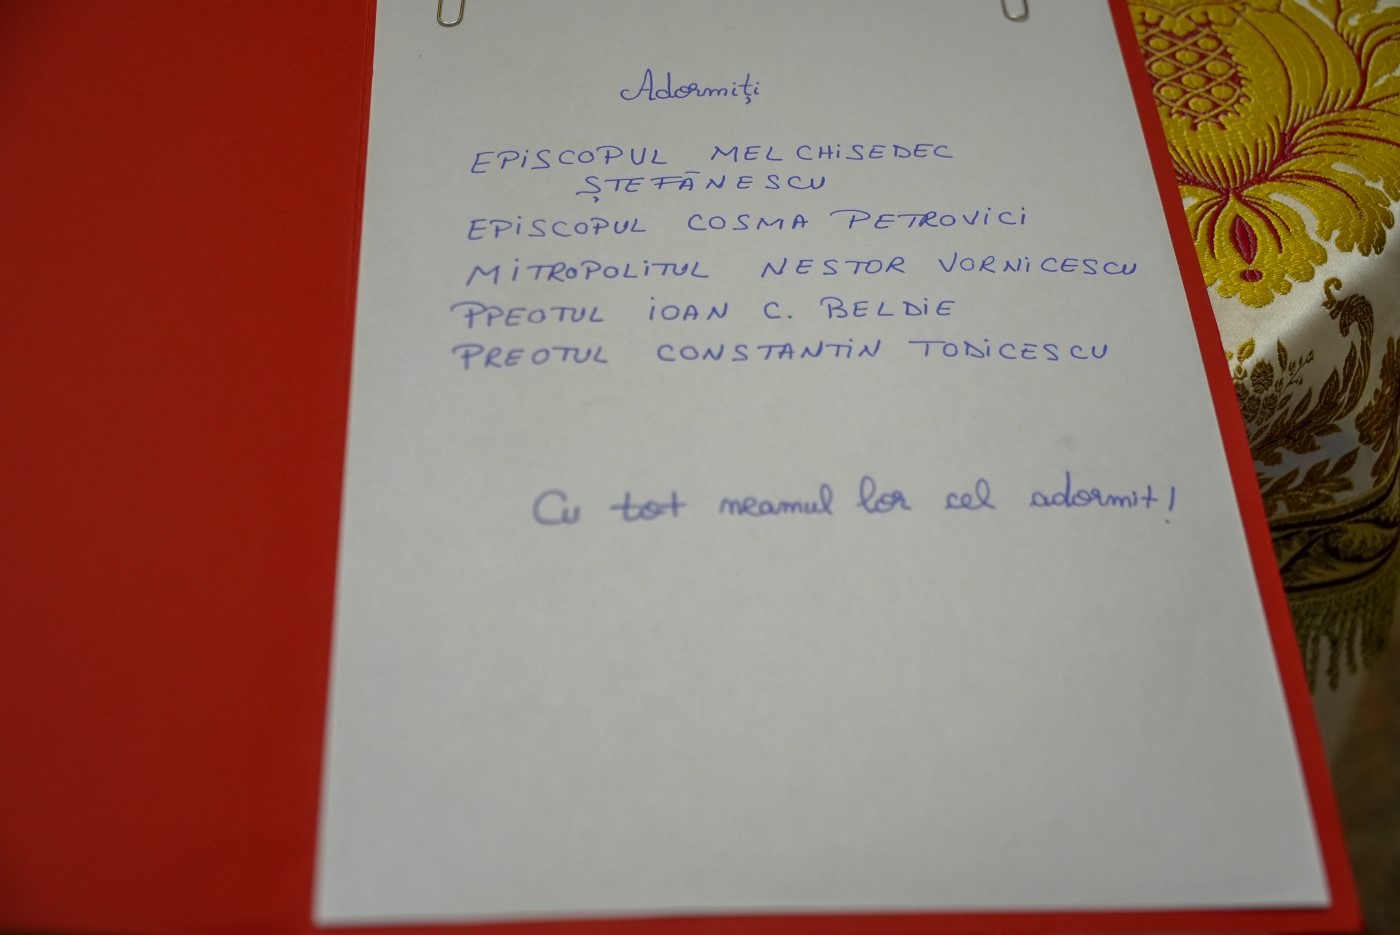 Adormiţi
EPiSCOPUL MELCHiSEDEC
ŞTEFĂNESCU
EPiSCOPUL COSMA PETROViCi
MiTROPOLiTUL NESTOR VORNiCESCU
PPEOTUL iOAN C. BELDiE
PREOTUL CONSTANTiN TODiCESCU
Cu tot neamul lor cel adormit!